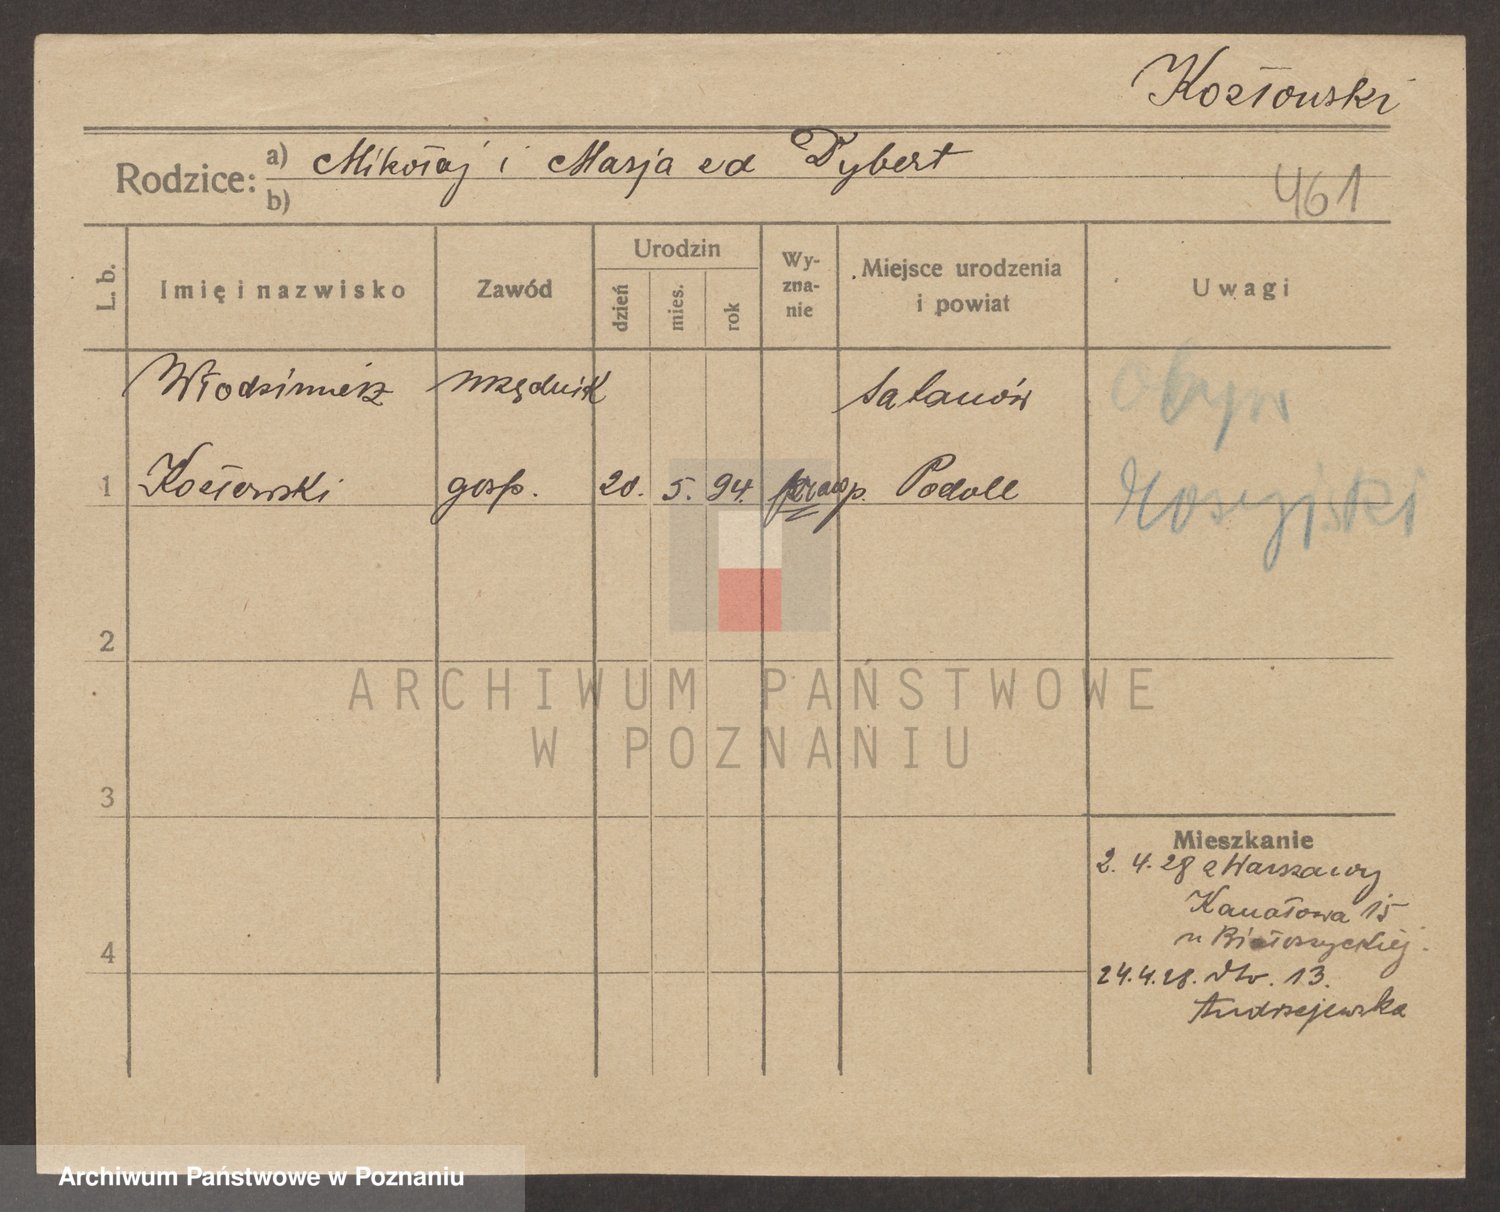 Kozłowski
Rodzice: a) Mikołaj i Marja zd Dybert
b)
461
L. b.
Imię i nazwisko
Zawód
Urodzin
dzień
mies.
rok
Wy-
zna-
nie
Miejsce urodzenia
i powiat
Uwagi
Włodzimierz urzędnik Satanów obyw
1 Kozłowski gosp. 20. 5. 94. prawp. Podole rosyjski
2
ARCHIWUM PAŃSTWOWE
W POZNANIU
3
Mieszkanie
2. 4. 28 z Warszawy
Kanałowa 15
u Białoszyckiej.
4
24.4.28. 13.
Andrzejewska
Archiwum Państwowe w Poznaniu